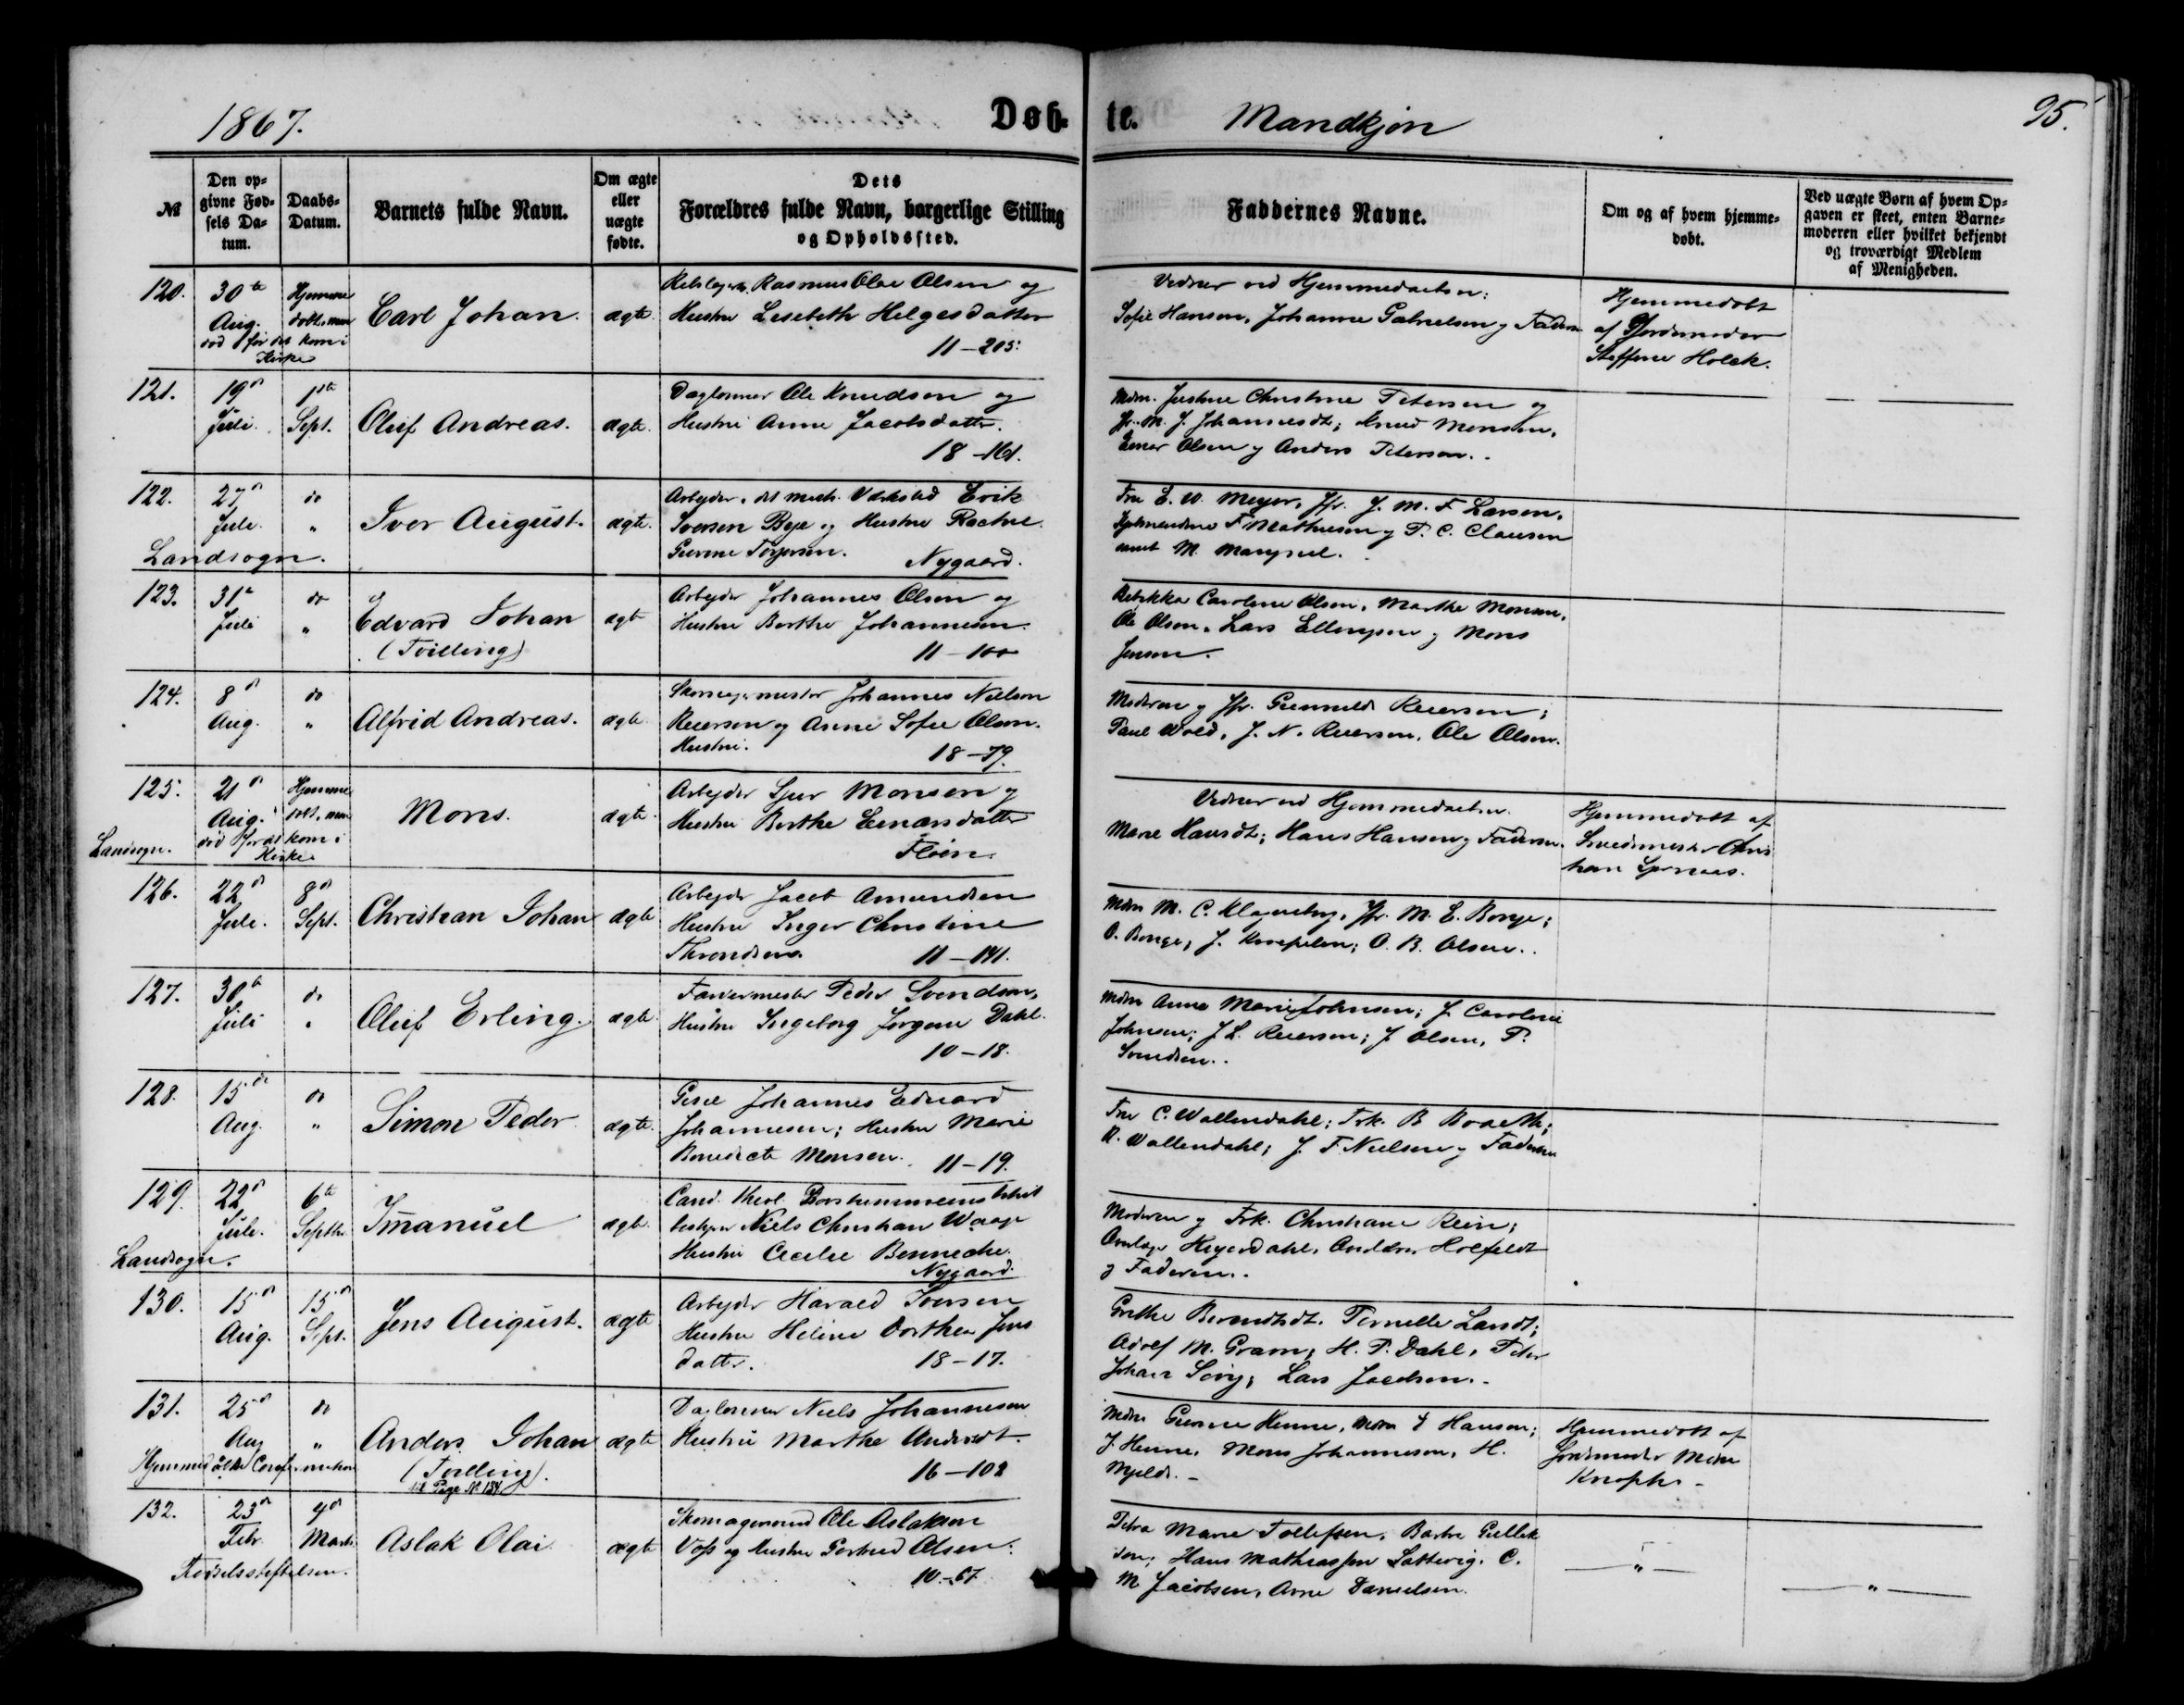 1867.
Døb-
te.
Mandkjøn
95.
№
Den op-
givne Fød-
sels Da-
tum.
Daabs-
Datum.
Barnets fulde Navn.
Om ægte
eller
uægte
fødte.
Dets
Forældres fulde Navn, borgerlige Stilling
og Opholdssted.
Faddernes Navne.
Om og af hvem hjemme-
døbt.
Ved uægte Børn af hvem Op-
gaven er skeet, enten Barne-
moderen eller hvilket bekjendt
og troværdigt Medlem
af Menigheden.
120. 30te Hjemme
Aug. døbt, men
død før det kom i
Kirke
Carl Johan. ægte.
Rasmus Olai Olsen og
Hustru Lesebeth Helgesdatter
11-205.
Vidner ved Hjemmedaaben:
Sofie Hansen, Johanne Gabrielsen og Faderen
Hjemmedøbt
af Jordemoder
Steffine Holck.
121. 19d 1ste
Juli. Sept.
Oluf Andreas. ægte.
Daglønner Ole Knudsen og
Hustru Anne Jacobsdatter.
18-161.
Mdm. Justine Christine Petersen og
Jfr. M. J. Johannesdt; Knud Monsen,
Einar Olsen og Anders Petersen.
122. 27d do
Juli. "
Landsogn.
Iver August. ægte.
Arbeider v. det mech. Værksted Erik
Iversen Bye og Hustru Rachel
Gurine Torjersen.
Nygaard.
Fru E. W. Meyer, Jfr. J. M. F. Larsen,
F Mathiesen og P. C. Clausen
samt M.
123. 31te do
Juli "
Edvard Johan
(Tvilling)
ægte
Arbeider Johannes Olsen og
Hustru Berthe Johannesen.
11-100
Rebekka Caroline Olsen, Marthe Monsen,
Ole Olsen, Lars Ellingsen og Mons
Jensen.
124. 8d do
Aug. "
Alfrid Andreas. ægte.
Skomagermester Johannes Nielsen
Reiersen og Anne Sofie Olsen.
Hustru.
18-79.
Moderen og Jfr. Gunnild Reiersen;
Paul Wold, J. N. Reiersen, Ole Olsen.
125. 21d Hjemme
Aug. døbt, men
død før det kom i
Kirke
Landsogn.
Mons. ægte.
Arbeider Sjur Monsen og
Hustru Berthe Einarsdatter
Fløen.
Vidner ved Hjemmedaaben.
Marie Hansdt; Hans Hansen og Faderen.
Hjemmedøbt af
Snedmester Chris
tian
126. 22d 8d
Juli. Sept.
Christian Johan ægte
Arbeider Jacob Amundsen
Hustru Inger Christine
Throndsen.
11-141.
Mdm M. C. Jfr. M. E. Borge;
O. Borge, J. O. B. Olsen.
127. 30te do
Juli "
Oluf Erling. ægte
Farvermester Peder Svendsen,
Hustru Ingeborg Jørgine Dahl.
10-18.
Mdm Anne Marie Johnsen; J. Caroline
Johnsen; J L. Reiersen; J Olsen, P.
Svendsen.
128. 15de do
Aug. "
Simon Peder ægte.
Johannes Edvard
Johannesen; Hustru Marie
Benedicte Monsen.
11-19.
Fru C. Wallendahl; Frk. B
R. Wallendahl; J. F Nielsen og Faderen
129. 22d 6te
Juli. Septbr.
Landsogn.
Imanuel ægte.
Cand. theol.
bestyrer Niels Christian Waage
Hustru Cecilie Bennecke.
Nygaard.
Moderen og Frk. Christiane Rein;
Overlæge
og Faderen.
130. 15d 15d
Aug. Sept.
Jens August. ægte
Arbeider Harald Iversen
Hustru Heline Dorthea Jens
datter.
18-17.
Grethe Berentsdt. Pernelle Landt;
Adolf M. Gram, H. P. Dahl, Peter
Johan Lars Jacobsen.
131. 25d do
Aug "
Hjemmedøbte
Anders Johan
(Tvilling).
ægte
Daglønner Niels Johannesen
Hustru Marthe Andersdt.
16-102
Mdm Gurine Henne, Mdm J Hansen;
J. Henne, Mons Johannesen, H.
Mjelde.
Hjemmedøbt af
Jordmoder Mdm
Knoph.
132. 23d 4d
Febr. Marts.
Fødselsstiftelsen.
Aslak Olai ægte
Skomagersvend Ole Aslaksen
Voss og Hustru Gertrud Olsen.
10-67
Petra Marie Tollefsen, Barbra Gullik
sen; Hans Mathiassen C.
M Jacobsen, Arne Danielsen.
"
"